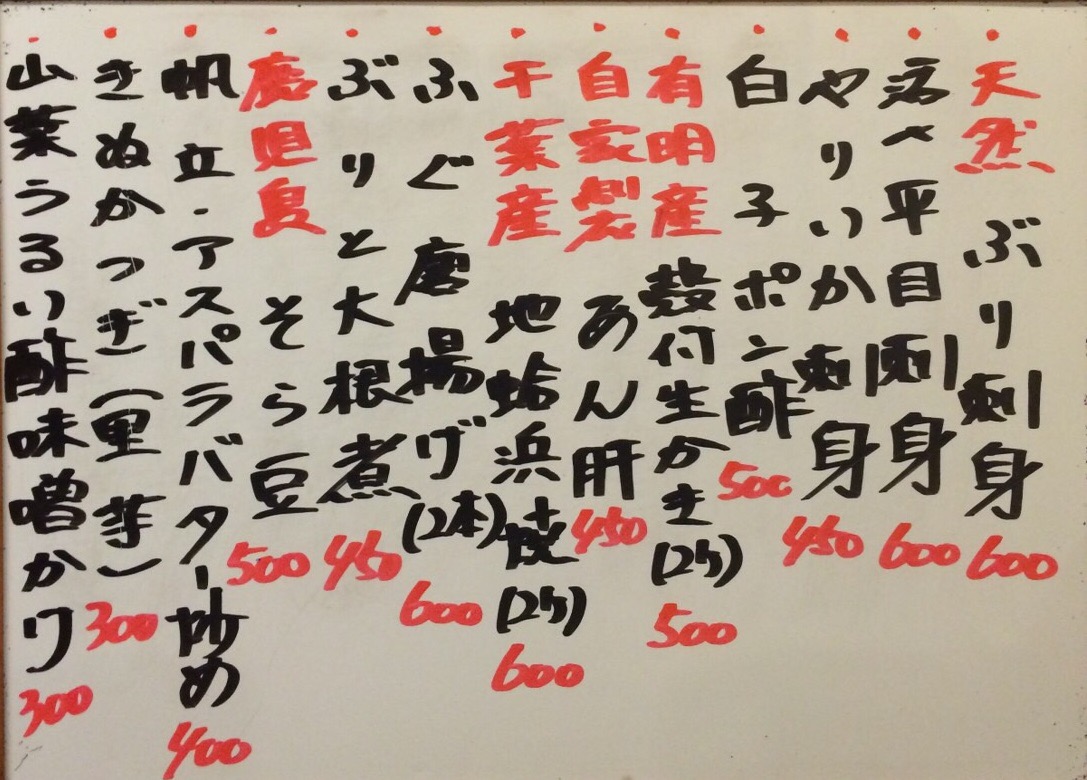 天然 ぶり刺身 600
活〆平目刺身 600
やりいか刺身 450
白子ポン酢 500
有明産 殻付生かき(2ケ) 500
自家製 あん肝 450
千葉産 地蛤浜焼(2ケ) 600
ふぐ唐揚げ(2本) 600
ぶりと大根煮 450
鹿児島 そら豆 500
帆立・アスパラバター炒め 400
きぬかつぎ(里芋) 300
山菜うるい酢味噌かけ 300